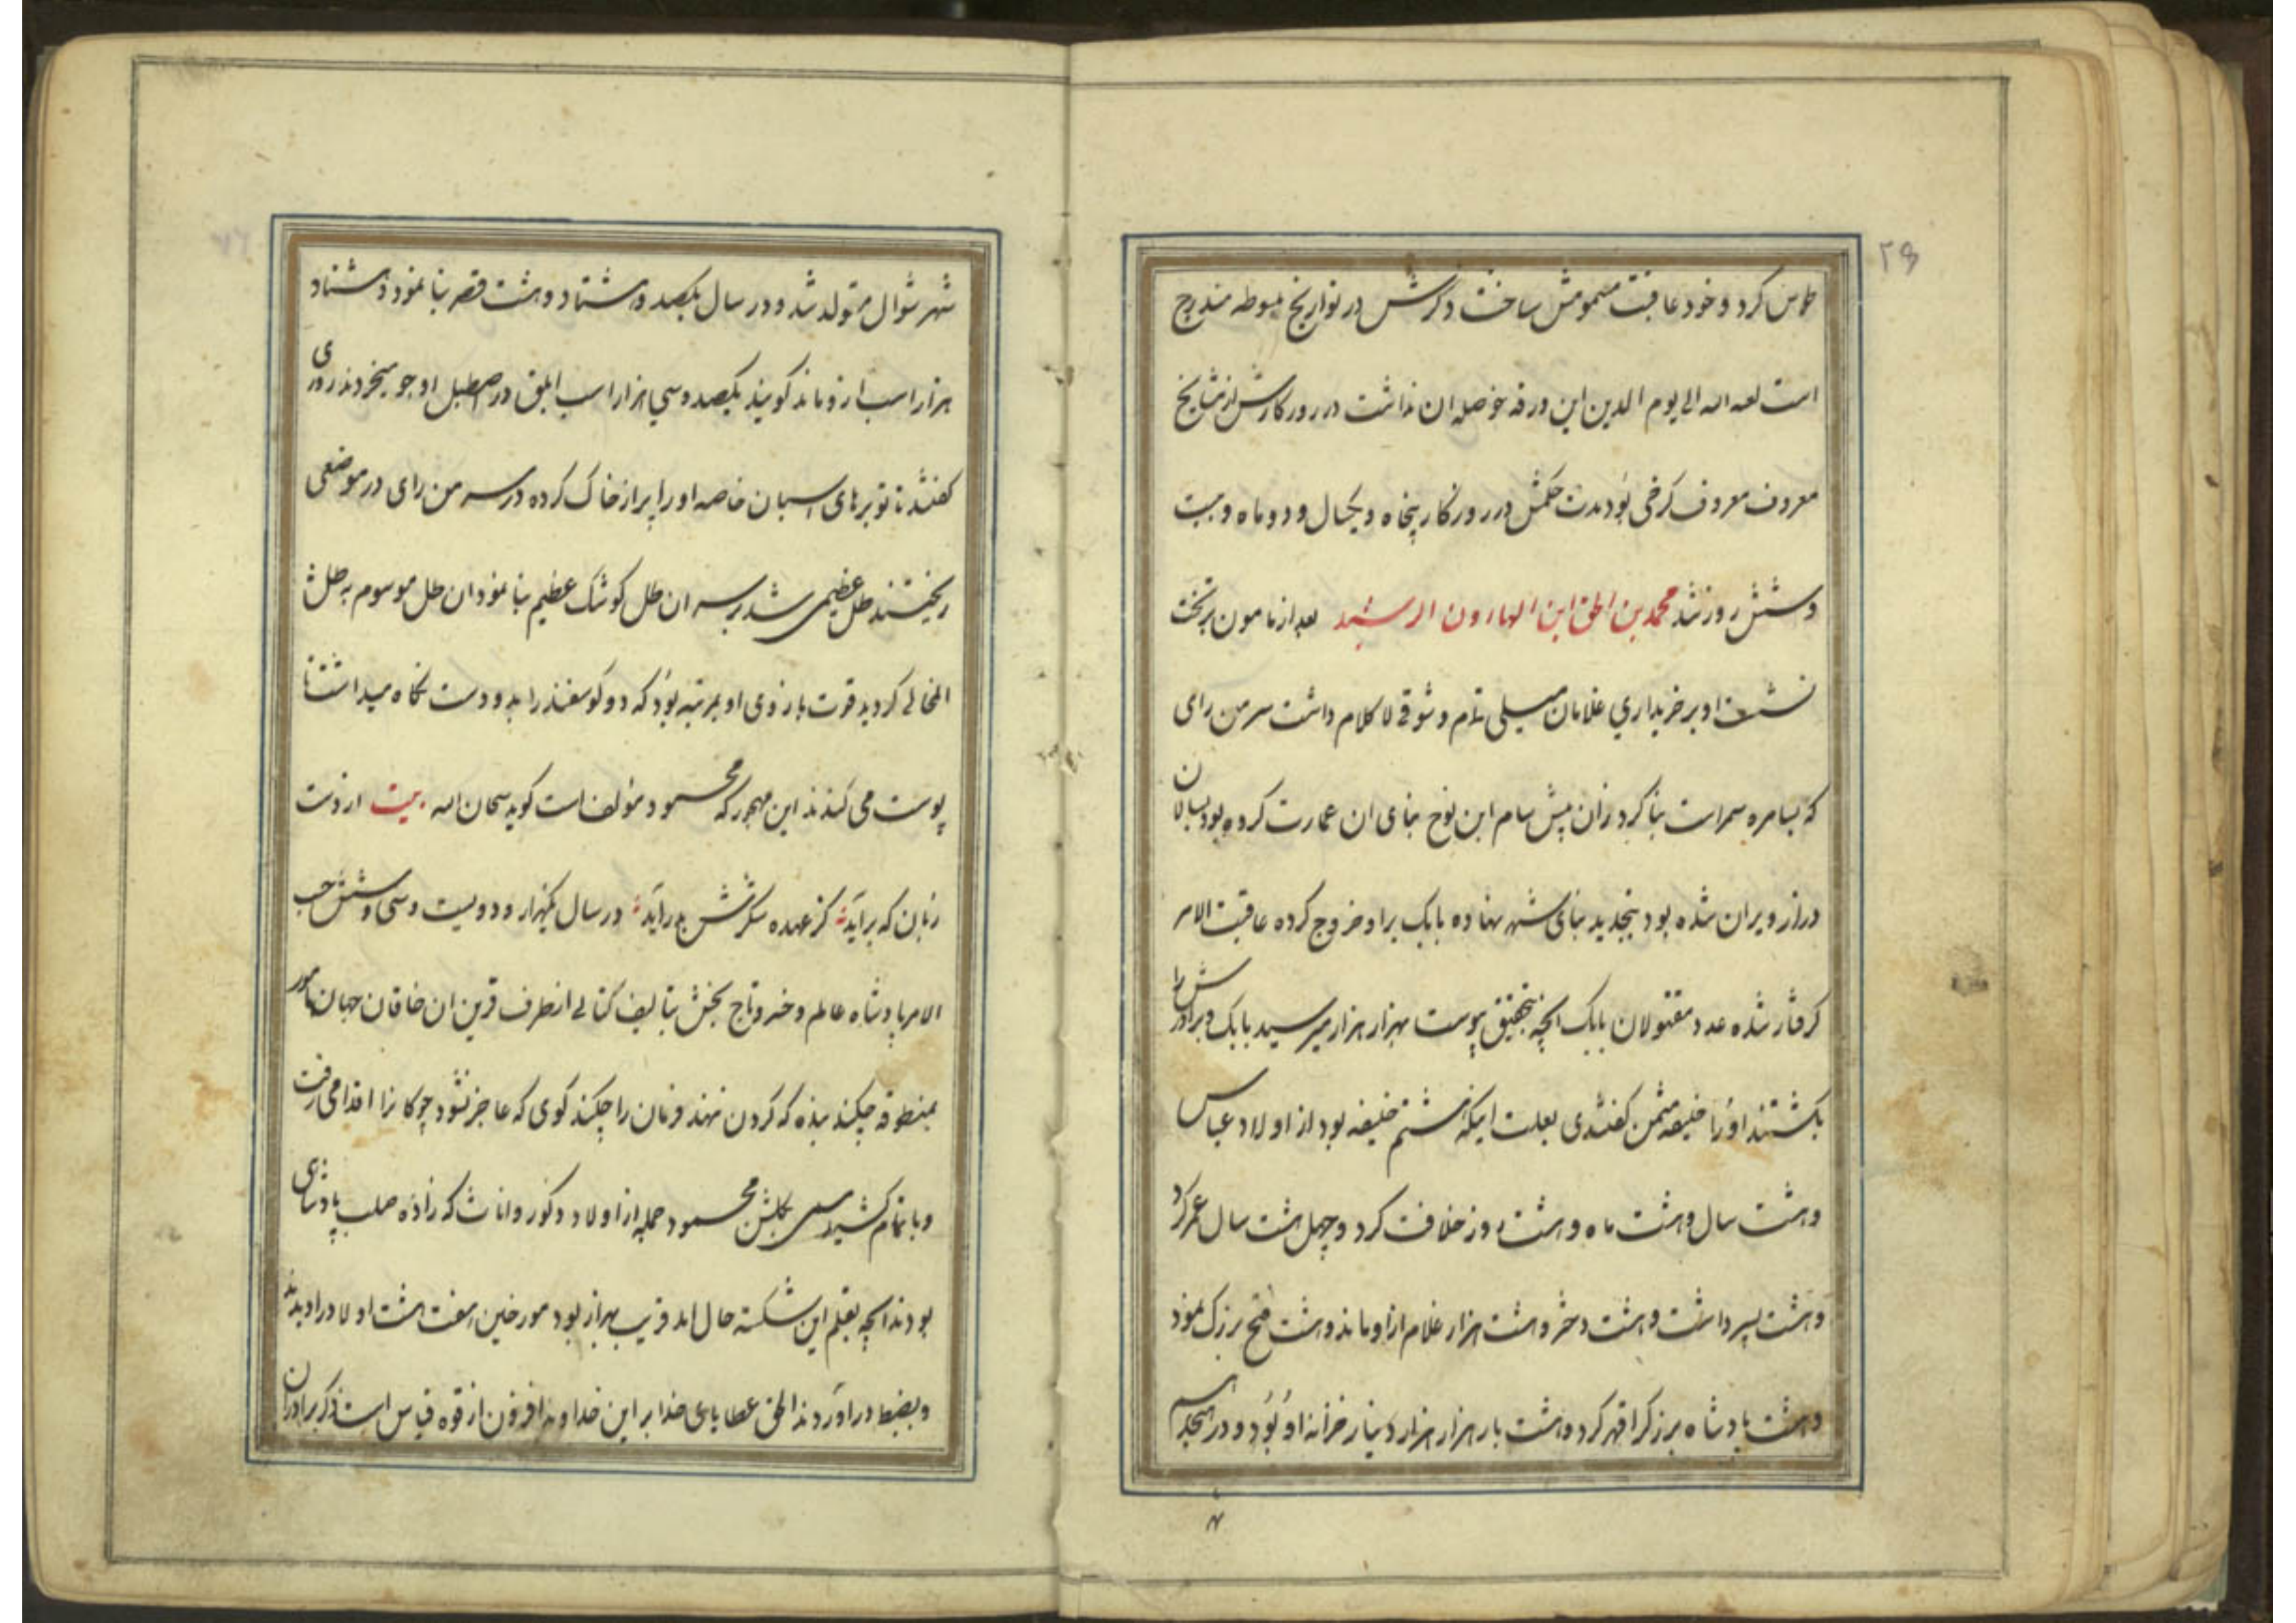 ۲۹
طوس کرد و خود عاقبت مسمومش ساخت ذکرش در تواریخ مبسوطه مندرج
است لعنه الله الی یوم الدین این ورقه حوصله ان نداشت در روزکارش از مشایخ
معروف معروف کرخی بود مدت حکمش در روزکار پنجاه و یکسال و دو ماه و بیست
و شش روز شد محمد بن اسحق ابن الهارون الرشید بعد از مامون بر تخت
نشست او بر خریداری غلامان میلی تمام و شوقی لا کلام داشت سر من رای
که بسامره سمراست بنا کرد زان پیش سام ابن نوح بنای ان عمارت کرده بود بسالان
دراز ویران شده بود بتجدید بنای شهر نهاده بابک بر او خروج کرده عاقبت الامر
کرفتار شده عدد مقتولان بابک انچه بتحقیق پیوست بهزار هزار میرسید بابک و برادرش را
بکشتند او را خلیفه مثمن کفتندی بعلت اینکه هشتم خلیفه بود از اولاد عباس
و هشت سال و هشت ماه و هشت روز خلافت کرد و چهل هشت سال عمر کرد
و هشت پسر داشت و هشت دختر و هشت هزار غلام از او ماند و هشت فتح بزرک نمود
و هشت پادشاه بزرکرا قهر کرد و هشت بار هزار هزار دینار خزانه او بود و در هیجدهم
شهر شوال متولد شد و در سال یکصد و هشتاد و هشت قصر بنا نمود و هشتاد
هزار اسب از و ماند کویند یکصد و سی هزار اسب ابلق در اصطبل او جو میخردند روزی
کفتند تا توبرهای اسبان خاصه او را پر از خاک کرده در سر من رای در موضعی
ریختند طل عظیمی شد بر سر ان طل کوشک عظیم بنا نمود ان طل موسوم به طل
المخالی کردید قوت بازوی او بمرتبه بود که دو کوسفند را بدو دست نکاه میداشت تا
پوست می کندند این مهجور که محمود مؤلف است کوید سبحان الله بیت از دست
زبان که براید کز عهده شکرش بدر آید در سال یکهزار و دویست و سی و شش حسب
الامر پادشاه عالم و خسرو تاج بخش بتالیف کتابی از طرف قرین ان خاقان جهان مامور
بمنطوقه چکند بنده که کردن ننهد فرمان را چکند کوی که عاجز نشود چوکانرا اقدامی رفت
و باتمام کشید مسمی بکلشن محمود جمله از اولاد ذکور و اناث که زاده صلب پادشاهی
بودند انچه بقلم این شکسته حال امد قریب بهزار بود مورخین هفت هشت اولاد را دیدند
و بضبط در اوردند الحق عطایای خدا بر این خداوند افزون از قوه قیاس است ذکر برادران